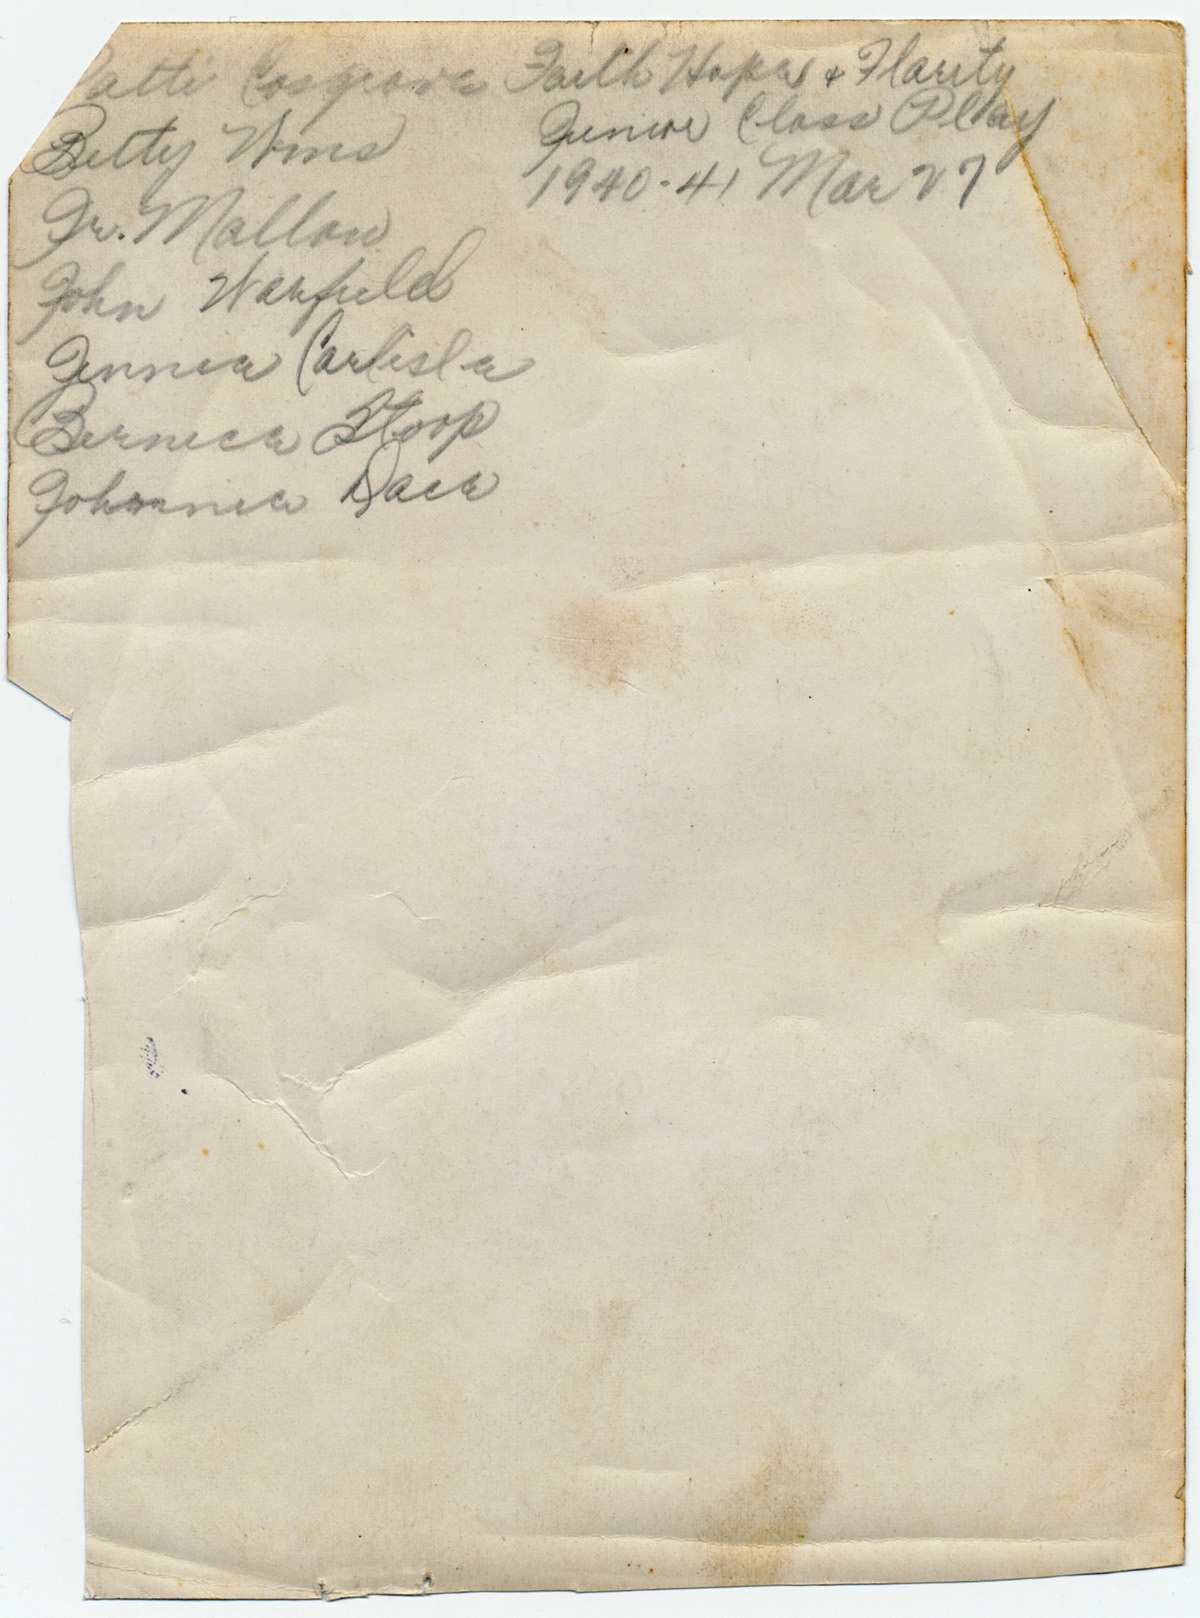 Patti Cosgrove
Betty Wins
Fr. Mallon
John Warfield
Jennie Carlisle
Bernice Stoop
Johnnie Dace
Faith Hope & Flarity
Junior Class Play
1940-41 Mar 27